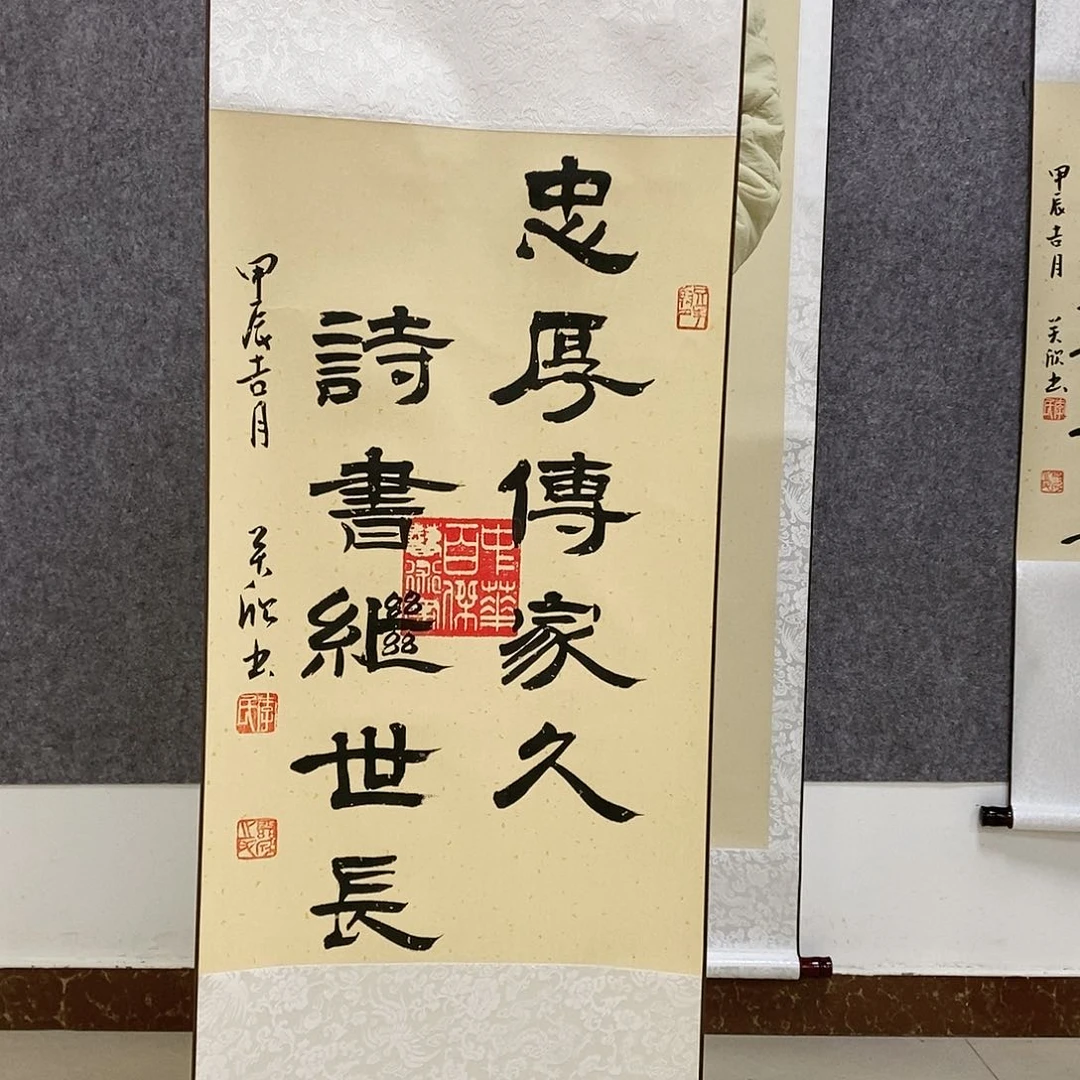 忠厚傳家久
詩書繼世長
甲辰吉月
关欣书
中華
百傑
甲辰吉月
关欣书